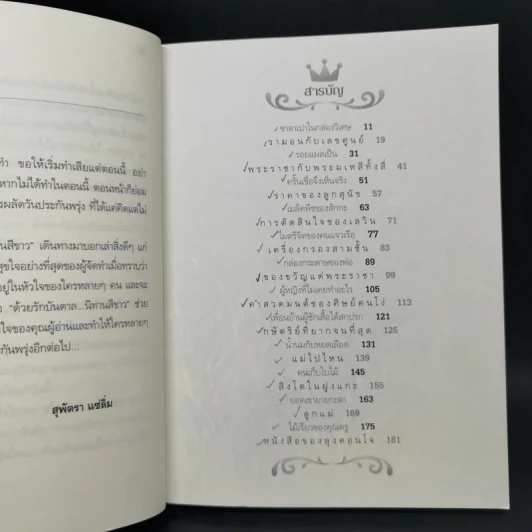 ทำ ขอให้เริ่มทำเสียแต่ตอนนี้ อย่า
หากไม่ได้ทำในตอนนี้ ตอนหน้าก็ย่อม
ผลัดวันประกันพรุ่ง ที่ได้แต่คิดแต่ไม่
นสีขาว” เดินทางมาบอกเล่าสิ่งดีๆ แก่
สุขใจอย่างที่สุดของผู้จัดทำเมื่อทราบว่า
อยู่ในหัวใจของใครหลายๆ คน และจะ
“ด้วยรักบันดาล...นิทานสีขาว” ช่วย
ใจของคุณผู้อ่านและทำให้ใครหลายๆ
กันพรุ่งอีกต่อไป...
สุพัตรา แซ่ลิ่ม
สารบัญ
ซาลาเปาในกล่องวิเศษ 11
รามอนกับเลขศูนย์ 19
รอยแผลเป็น 31
พระราชากับพระมเหสีทั้งสี่ 41
ครั้นเชื่อจึงเห็นจริง 51
ราคาของลูกสุนัข 57
เมล็ดพืชของสักกะ 63
การตัดสินใจของเลวิน 71
ไมตรีจิตของคนแจวเรือ 77
เครื่องกรองสามชั้น 83
กล่องกระดาษของพ่อ 89
ของขวัญแด่พระราชา 99
ผู้หญิงที่ไม่เคยทำอะไร 105
คำสวดมนต์ของศิษย์คนโง่ 113
เพื่อนบ้านผู้ซักเสื้อได้สกปรก 121
กษัตริย์ที่ยากจนที่สุด 125
น้ำนมกับหยดเลือด 131
แม่ไปไหน 139
คนเก็บใบไม้ 145
สิงโตในฝูงแกะ 155
ยอดเขาบายกะดา 163
ลูกแม่ 169
ไม้เรียวของคุณครู 175
หนังสือของลุงคอนโจ 181